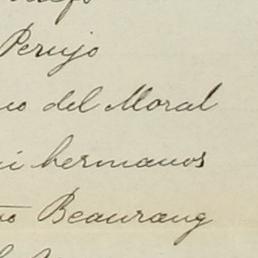 Perujo
no del Moral
hermanos
Beaurang